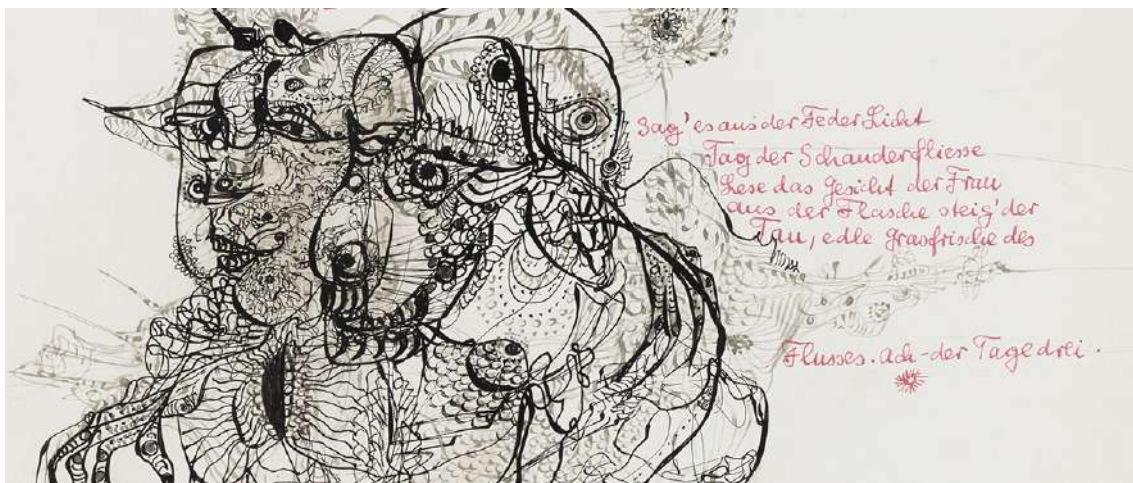 Sag' es aus der Feder Licht
Tag der Schauder fliesse
Lese das Gesicht der Frau
aus der Flasche steig' der
Tau, edle Grasfrische des
Flusses. Ach - der Tage drei.